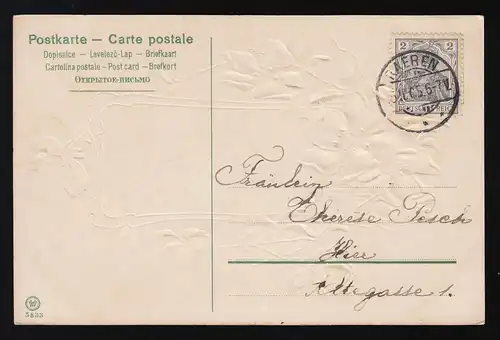 Postkarte – Carte postale
Dopisnice – Levelező-Lap – Briefkaart
Cartolina postale – Post card – Brefkort
Открытое-письмо
2 2
DEUTSCHES REICH
Fräulein
Therese Pesch
Hier
Altegasse 1.
5833